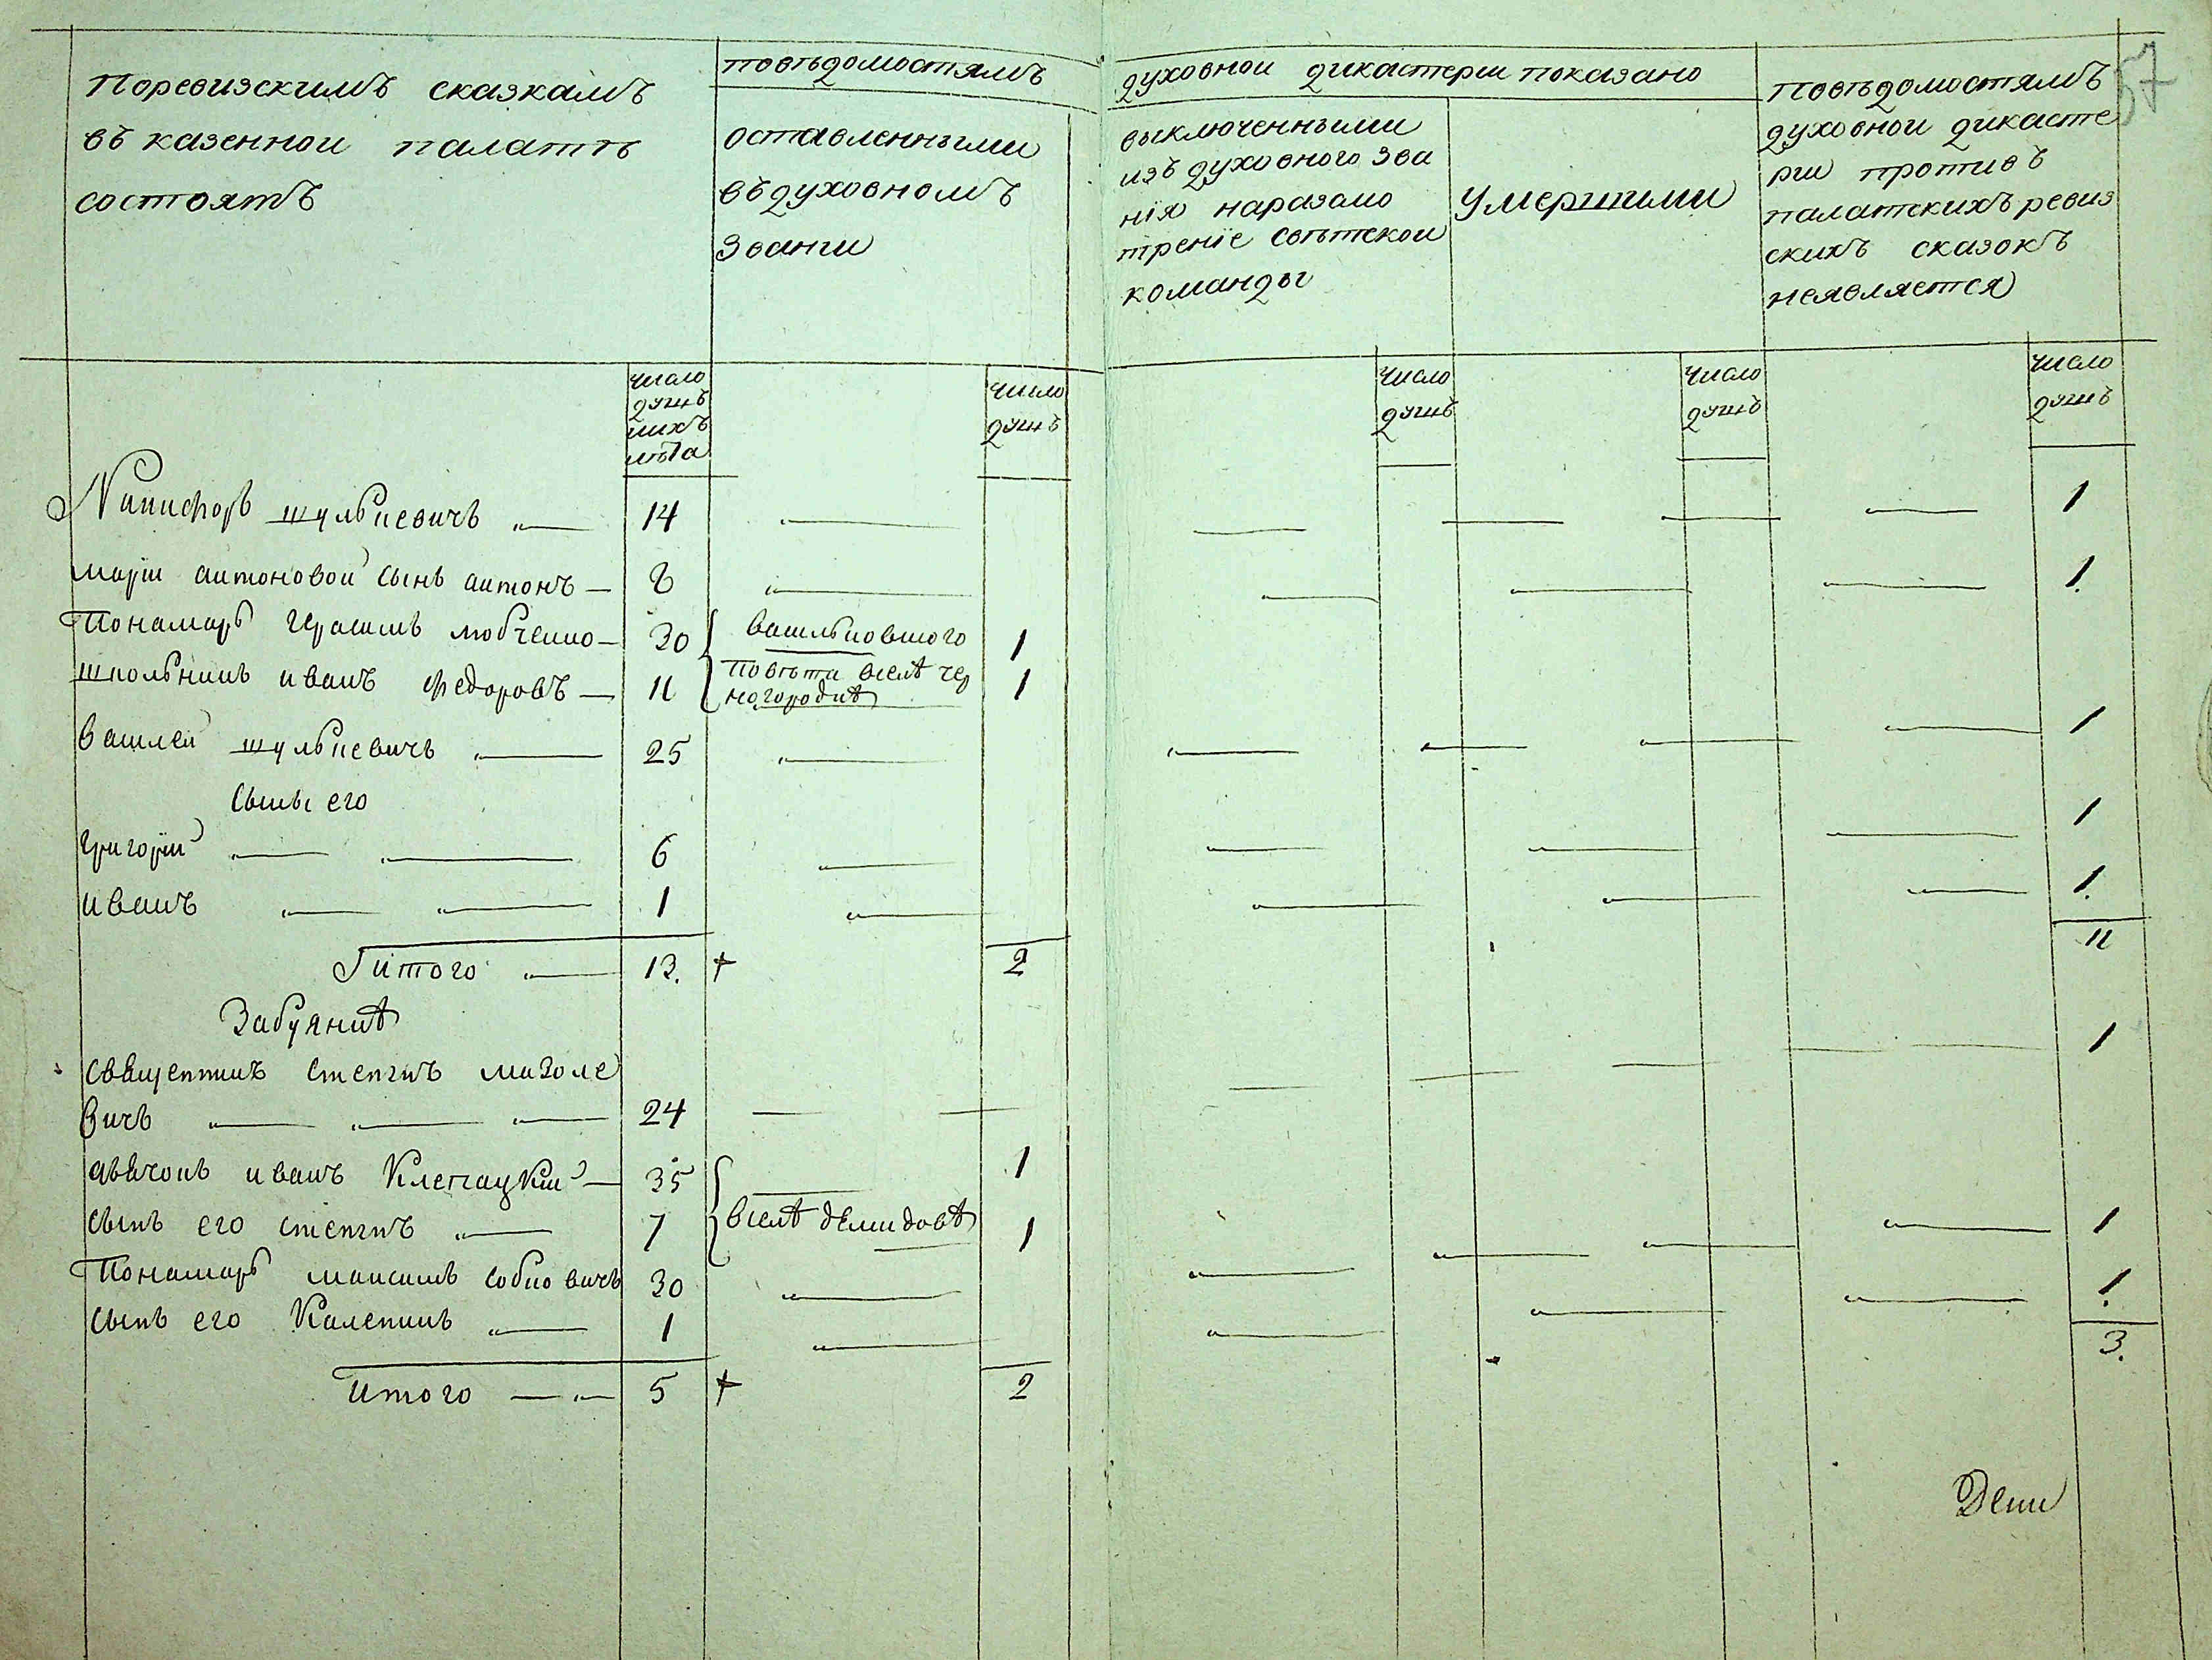 Поревизскимъ сказкамъ
въ казенной палатѣ
состоятъ
повѣдомостямъ
оставленными
въ духовномъ
Звании
духовной дикастерии показано
выключенными
изъ духовного Зва
нїя наразсмо
тренїе свѣтской
команды
умершими
Повѣдомостямъ
духовной дикасте
рии противъ
палатскихъ ревиз
скихъ сказокъ
неявляется
57
число
душъ
ихъ
лѣта
число
душъ
число
душъ
число
душъ
число
душъ
Никифоръ шулькевичъ 14 1
марїи антоновой сынъ антонъ 8 1
Пономарь герасимъ любченко 30 васильковского 1
школьникъ иванъ федоровъ 11 повѣта вселѣ чер
ногородкѣ 1
василей шулькевичъ 25 1
сыны его
григорїй 6 1
иванъ 1 1
Итого 13. + 2 11
Забуянкѣ
свѣщенникъ стефанъ мизоле
вичъ 24 1
дьячокъ иванъ Клепацкїй 35 1
сынъ его стефанъ 7 вселѣ демидовѣ 1
Понамарь максимъ собковичъ 30 1
сынъ его Каленикъ 1 1
Итого 5 + 2 3.
Деми